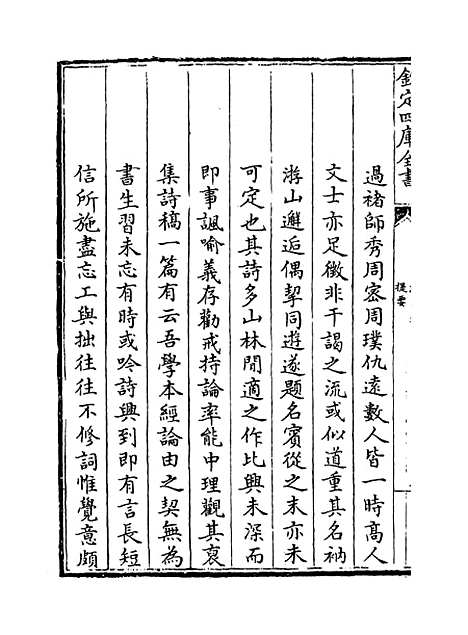 欽定四庫全書
提要
過褚師秀周密周璞仇遠數人皆一時髙人
文士亦足徴非干謁之流或似道重其名衲
游山邂逅偶挈同遊遂題名賓從之末亦未
可定也其詩多山林閒適之作比興未深而
即事諷喻義存勸戒持論率能中理觀其裒
集詩稿一篇有云吾學本經論由之契無為
書生習未忘有時或吟詩興到即有言長短
信所施盡忘工與拙往往不修詞惟覺意頗